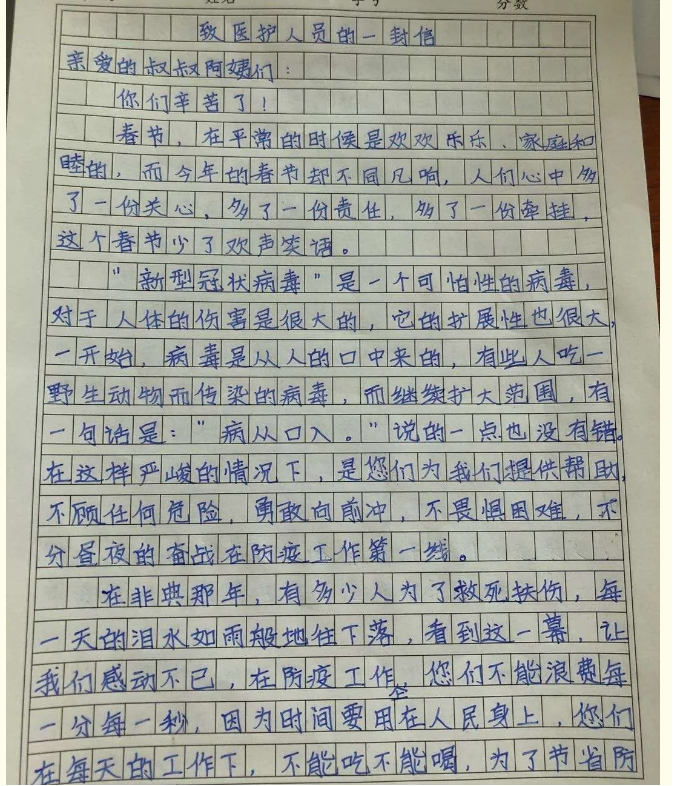 分数
致医护人员的一封信
亲爱的叔叔阿姨们：
你们辛苦了！
春节，在平常的时候是欢欢乐乐、家庭和
睦的，而今年的春节却不同凡响，人们心中多
了一份关心，多了一份责任，多了一份牵挂，
这个春节少了欢声笑语。
“新型冠状病毒”是一个可怕性的病毒，
对于人体的伤害是很大的，它的扩展性也很大，
一开始，病毒是从人的口中来的，有些人吃一
野生动物而传染的病毒，而继续扩大范围，有
一句话是：“病从口入。”说的一点也没有错。
在这样严峻的情况下，是您们为我们提供帮助，
不顾任何危险，勇敢向前冲，不畏惧困难，不
分昼夜的奋战在防疫工作第一线。
在非典那年，有多少人为了救死扶伤，每
一天的泪水如雨般地往下落，看到这一幕，让
我们感动不已，在防疫工作 您们不能浪费每
一分每一秒，因为时间要用在人民身上，您们
在每天的工作下，不能吃不能喝，为了节省防